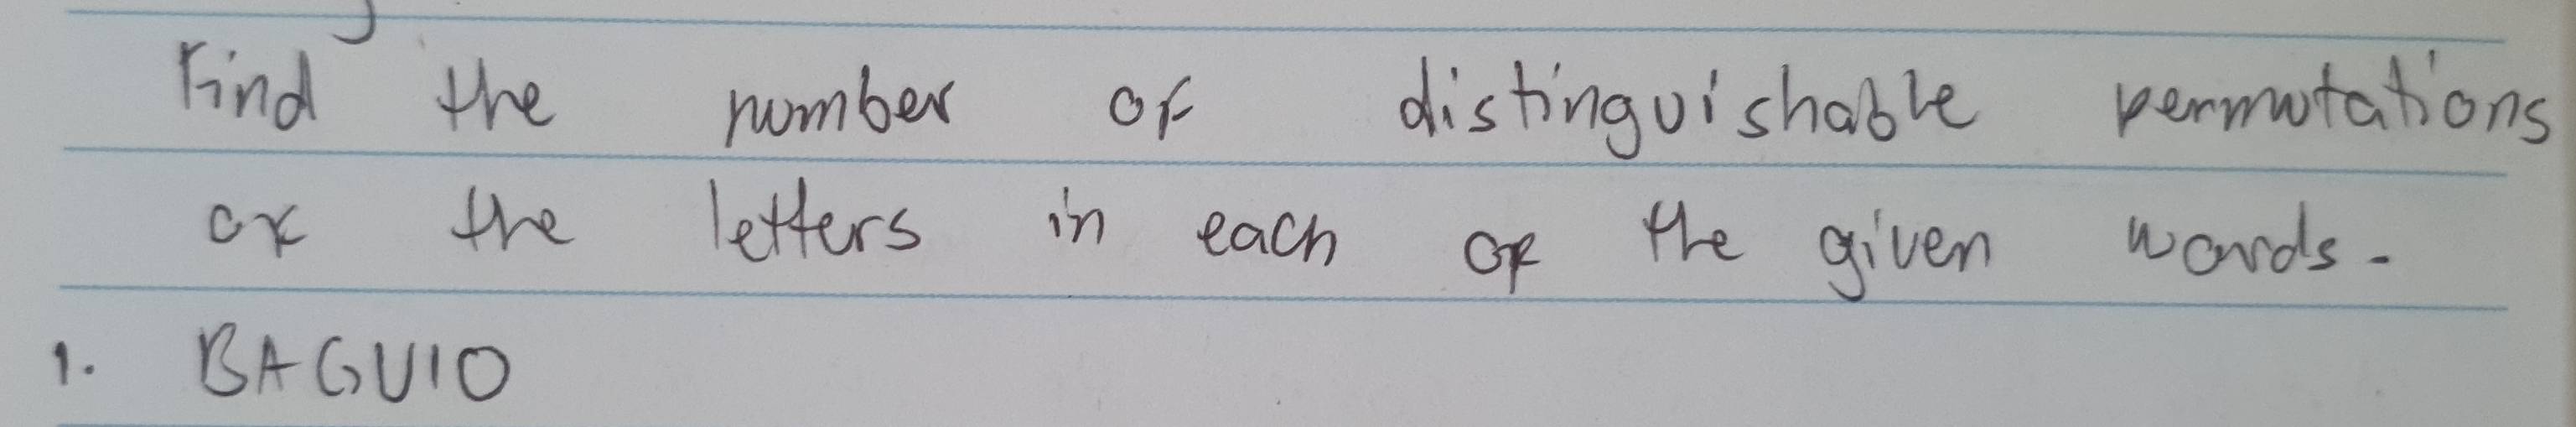 Find the number of distinguishable permutations
of the letters in each of the given words.
1. BAGUIO